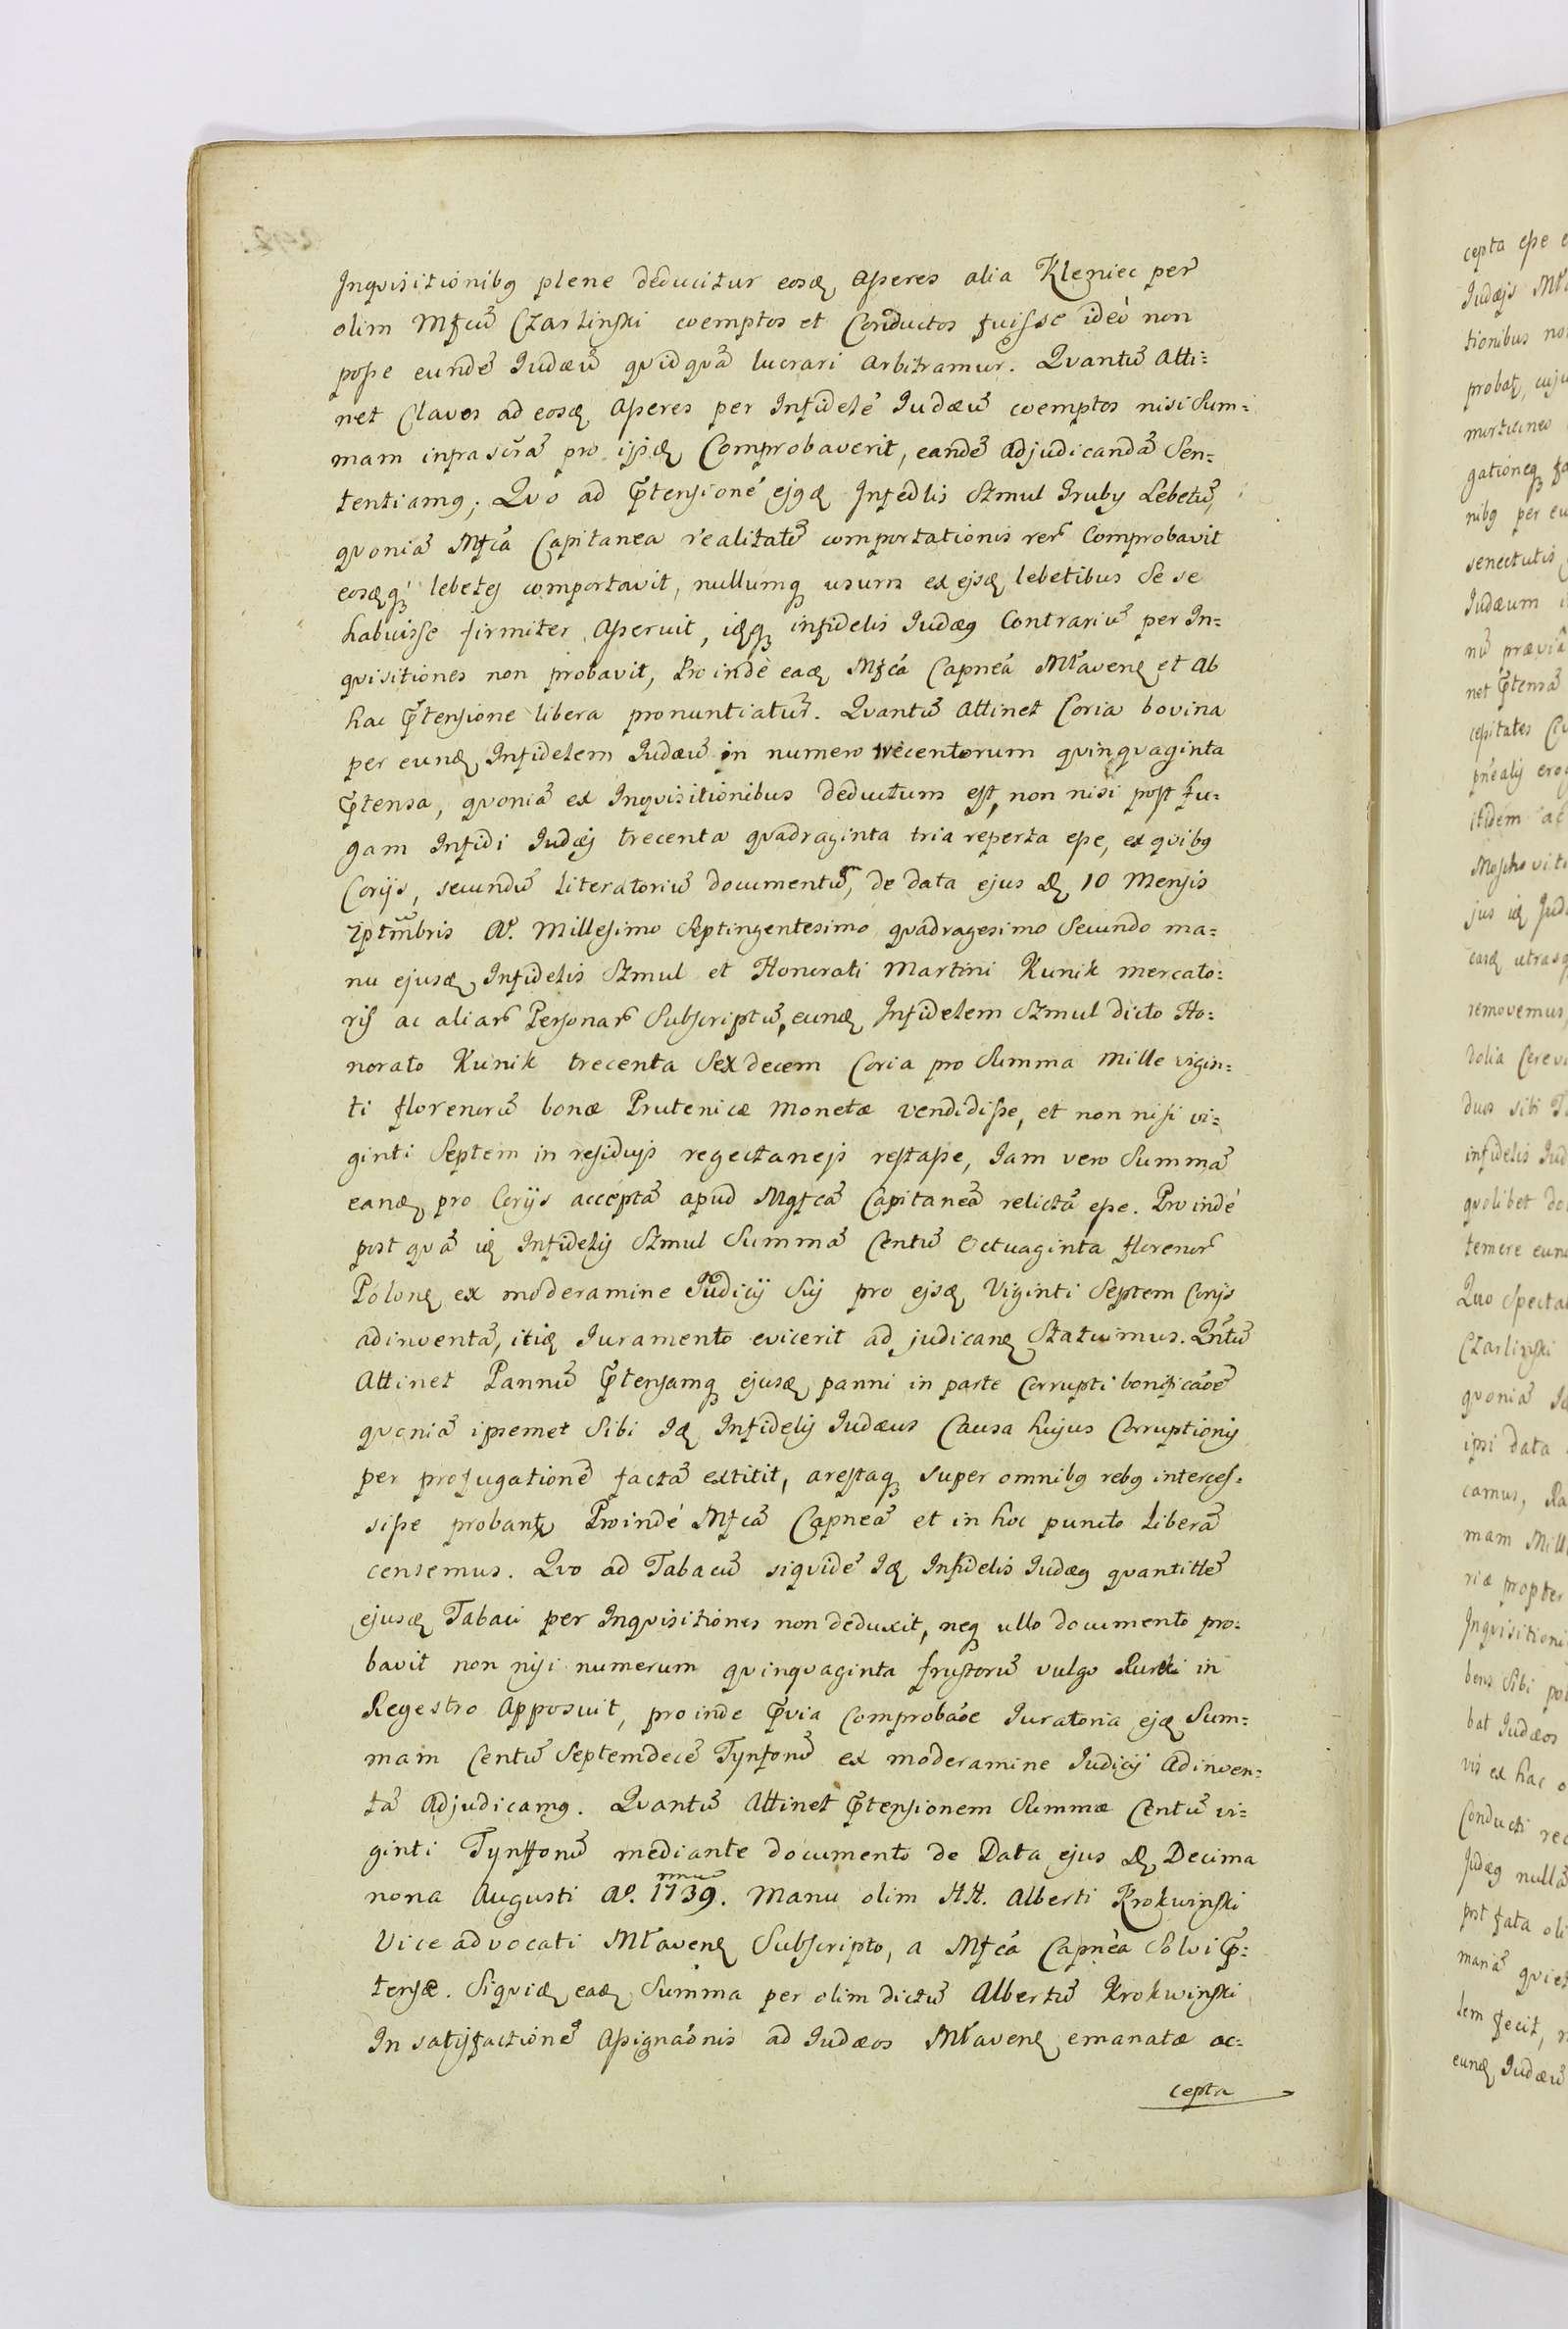 Inquisitionibꝯ plene deducitur eosdꝫ Asseres alia Kleniec per
olim Mfcũ Czarlinski coemptos et Conductos fuisse ideò non
posse eundẽ Iudæũ quidquã lucrari Arbitramur. Quantũ Atti=
net Claves ad eosdꝫ Asseres per Infidelẽ Iudæũ coemptos nisi Sum=
mam infrascrã pro ijsdꝫ Comprobaverit, eandẽ Adjudicandã Sen=
tentiamꝯ; Quò ad Prætensionẽ ejꝯdꝫ Infedlis Szmul Gruby Lebetũ,
quoniã Mfcã Capitanea realitatẽ comportationis rer Comprobavit
eosdꝫqꝫ lebetes comportavit, nullumqꝫ usum ex ejsdꝫ lebetibus Se se
habuisse firmiter Asseruit, idꝫqꝫ infidelis Iudæꝯ Contrariũ per In=
quisitiones non probavit, Proindè eadꝫ Mfcã Capneã Mławenꝫ et Ab
hac Prætensione libera pronuntiatur. Quantũ Attinet Coria bovina
per eundꝫ Infidelem Iudæũ in numero trecentorum quinquaginta
Prætensa, quoniã ex Inquisitionibus deductum est, non nisi post fu=
gam Infidi Iudæj trecenta quadraginta tria reperta esse, ex quibꝯ
Corijs, secundũ literatoriũ documentũ, de data ejus dꝫ 10 Mensis
7ptmbris Aº. Millesimo Septingentesimo quadragesimo Secundo ma=
nu ejusdꝫ Infidelis Szmul et Honorati Martini Kunik mercato=
ris ac aliar Personar Subscriptũ, eundꝫ Infidelem Szmul dicto Ho=
norato Kunik trecenta Sexdecem Coria pro Summa Mille vigin=
ti florenorũ bonæ Prutenicæ Monetæ vendidisse, et non nisi vi=
ginti Septem in residujs regectanejs restasse, Iam vero Summã
eandꝫ pro Corijs acceptã apud Mgfcã Capitaneã relictã esse. Proindè
post quã idꝫ Infidelis Szmul Summã Centũ Octuaginta florenor
Polonꝫ ex moderamine Iudicij Sui pro ejsdꝫ Viginti Septem Corijs
adinventã, itidꝫ Iuramento evicerit ad judicandꝫ Statuimus. Qntũ
Attinet Pannũ Prætensamqꝫ ejusdꝫ panni in parte Corrupti bonificãoẽ
quoniã ipsemet Sibi Idꝫ Infidelis Iudæus Causa hujus Corruptionis
per profugationẽ factã extitit, arestaqꝫ super omnibꝯ rebꝯ interces=
sisse probantꝫ Proindé Mfcã Capneã et in hoc puncto liberã
censemus. Quo ad Tabacũ siquidẽ Idꝫ Infidelis Iudæꝯ quantittẽ
ejusdꝫ Tabaci per Inquisitiones non deduxit, neqꝫ ullo documento pro=
bavit non nisi numerum quinquaginta frustorũ vulgo Rurki in
Regestro Apposuit, proinde Prævia Comprobãoe Iuratoria ejdꝫ Sum=
mam Centũ Septemdecẽ Tynfonũ ex moderamine Iudicij Adinven=
tã Adjudicamꝯ. Quantũ Attinet Prætensionem Summæ Centũ vi=
ginti Tynfonũ mediante documento de Data ejus dꝫ Decima
nona Augusti Aº. 1739. Manu olim HH. Alberti Krokwinski
Vice advocati Mławenꝫ Subscripto, a Mfcã Capnèa Solvi Præ=
tensæ. Siquidꝫ eadꝫ Summa per olim dictũ Albertũ Krokwinski
In satisfactionẽ Assignãonis ad Iudæos Mławenꝫ emanatæ ac=
cepta
cepta esse
Iudæjs
tionibus
probatꝫ,
gationeqꝫ
nibꝯ per
senectutis
Iudæum
nũ præviã
net Prætensã
itidem ac
jus idꝫ
easdꝫ utrasqꝫ
removemus,
dolia
duos sibi
infidelis
quolibet
temere
Quo
Czarlinski
quoniã
ipsi data
camus,
mam
riæ propter
bens Sibi
bat Iudæos
vis ex hac
Conducti
Iudæꝯ nullã
post fata
maniã
tem fecit,
eundꝫ Iudæũ